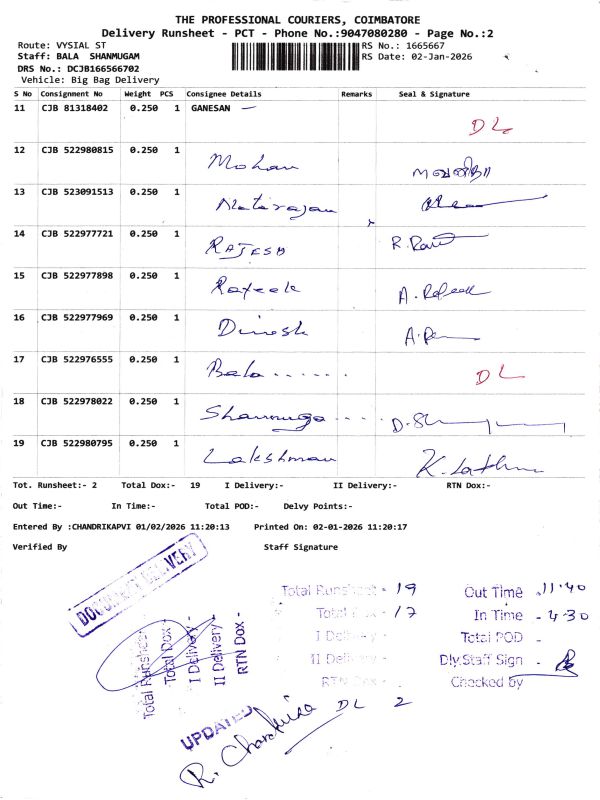 THE PROFESSIONAL COURIERS, COIMBATORE
Delivery Runsheet - PCT - Phone No.:9047080280 - Page No.:2
Route: VYSIAL ST RS No.: 1665667
Staff: BALA SHANMUGAM RS Date: 02-Jan-2026
DRS No.: DCJB166566702
Vehicle: Big Bag Delivery
S No Consignment No Weight PCS Consignee Details Remarks Seal & Signature
11 CJB 81318402 0.250 1 GANESAN — DL
12 CJB 522980815 0.250 1 Mohan
13 CJB 523091513 0.250 1 Natarajan
14 CJB 522977721 0.250 1 RAJESH
15 CJB 522977898 0.250 1 Rafeek A. Rafeek
16 CJB 522977969 0.250 1 Dinesh
17 CJB 522976555 0.250 1 Bala ...... DL
18 CJB 522978022 0.250 1 Shanmuga ....
19 CJB 522980795 0.250 1 Lakshman
Tot. Runsheet:- 2 Total Dox:- 19 I Delivery:- II Delivery:- RTN Dox:-
Out Time:- In Time:- Total POD:- Delvy Points:-
Entered By :CHANDRIKAPVI 01/02/2026 11:20:13 Printed On: 02-01-2026 11:20:17
Verified By Staff Signature
DOCUMENT DELIVERY
Total Runsheet -
Total Dox -
I Delivery -
II Delivery -
RTN Dox -
Total Runsheet - 19 Out Time - 11.40
Total Dox - 17 In Time - 4.30
I Delivery - Total POD -
II Delivery - Dly.Staff Sign -
RTN Dox - Checked by
DL 2
UPDATED